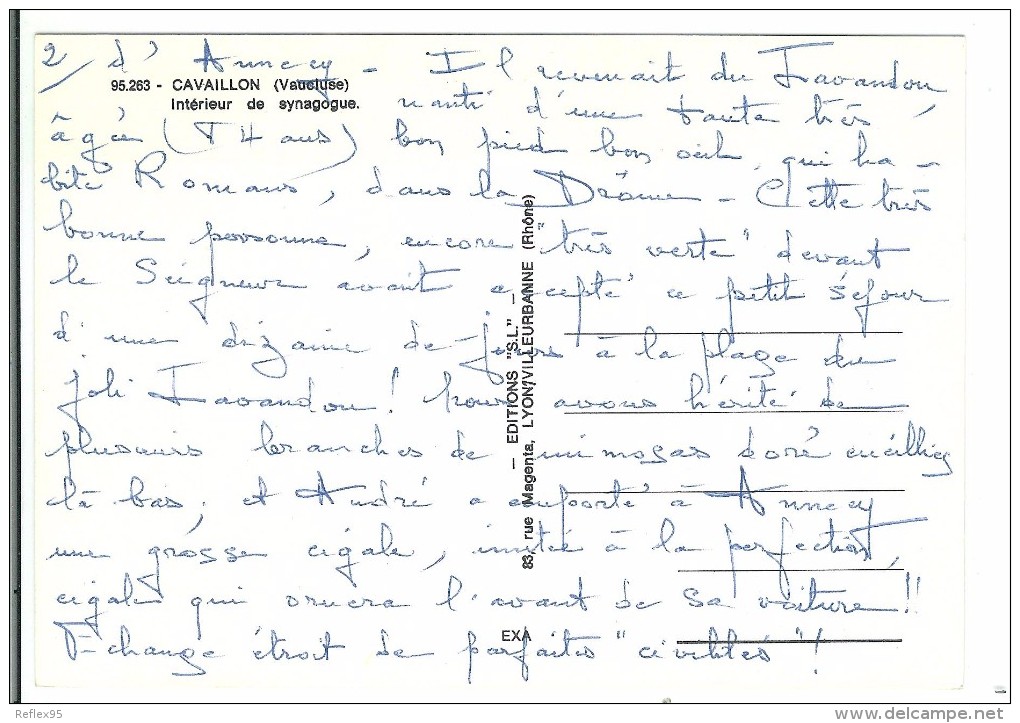 2/ d'Annecy - Il revenait du Lavandou,
95.263 - CAVAILLON (Vaucluse)
Intérieur de synagogue.
nanti d'une tante très
âgée (74 ans) bon pied bon œil, qui ha-
bite Romans, dans la Drôme - Cette très
bonne personne, encore "très verte" devant
le Seigneur avait accepté ce petit séjour
d'une dizaine de jours à la plage du
joli Lavandou! Nous avons hérité de
plusieurs branches de mimosas doré cueillies
là bas; et André a emporté à Annecy
une grosse cigale, imitée à la perfection,
cigale qui ornera l'avant de sa voiture!!
Echange étroit de parfaites "civilités"!
— EDITIONS "S.L." —
83, rue Magenta, LYON/VILLEURBANNE (Rhône)
EXA
Reflex95
www.delcampe.net